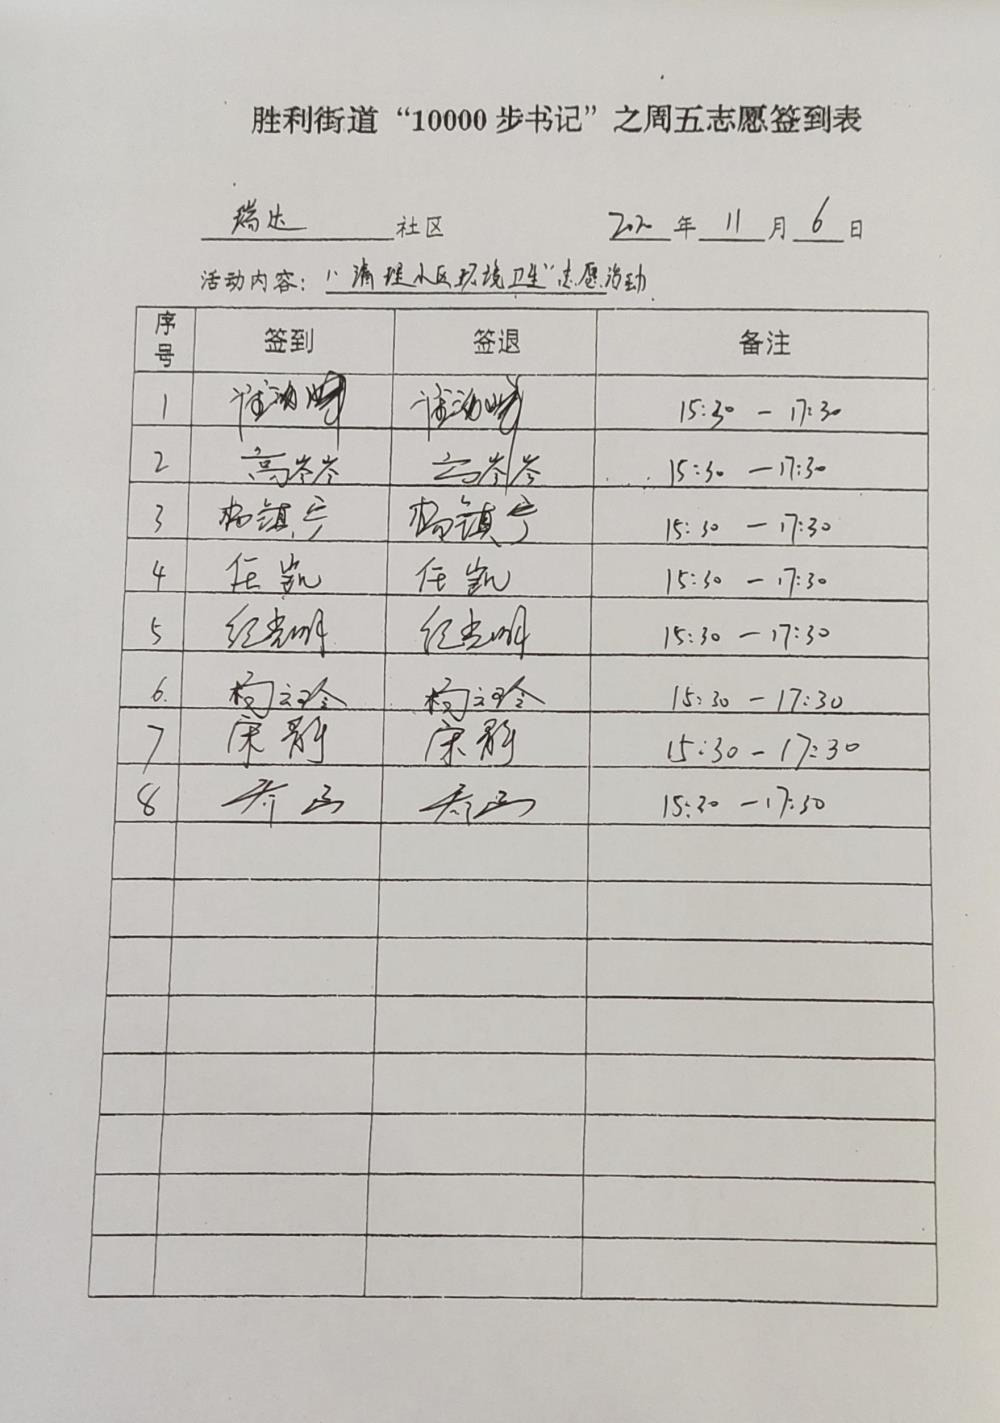 胜利街道“10000步书记”之周五志愿签到表
瑞达 社区 2020 年 11 月 6 日
活动内容：“清理小区环境卫生”志愿活动
序号 签到 签退 备注
1 15:30 — 17:30
2 高岑岑 高岑岑 15:30 — 17:30
3 杨镇宁 杨镇宁 15:30 — 17:30
4 任凯 任凯 15:30 — 17:30
5 纪光明 纪光明 15:30 — 17:30
6. 杨 杨 15:30 — 17:30
7 宋静 宋静 15:30 — 17:30
8 乔 乔 15:30 — 17:30